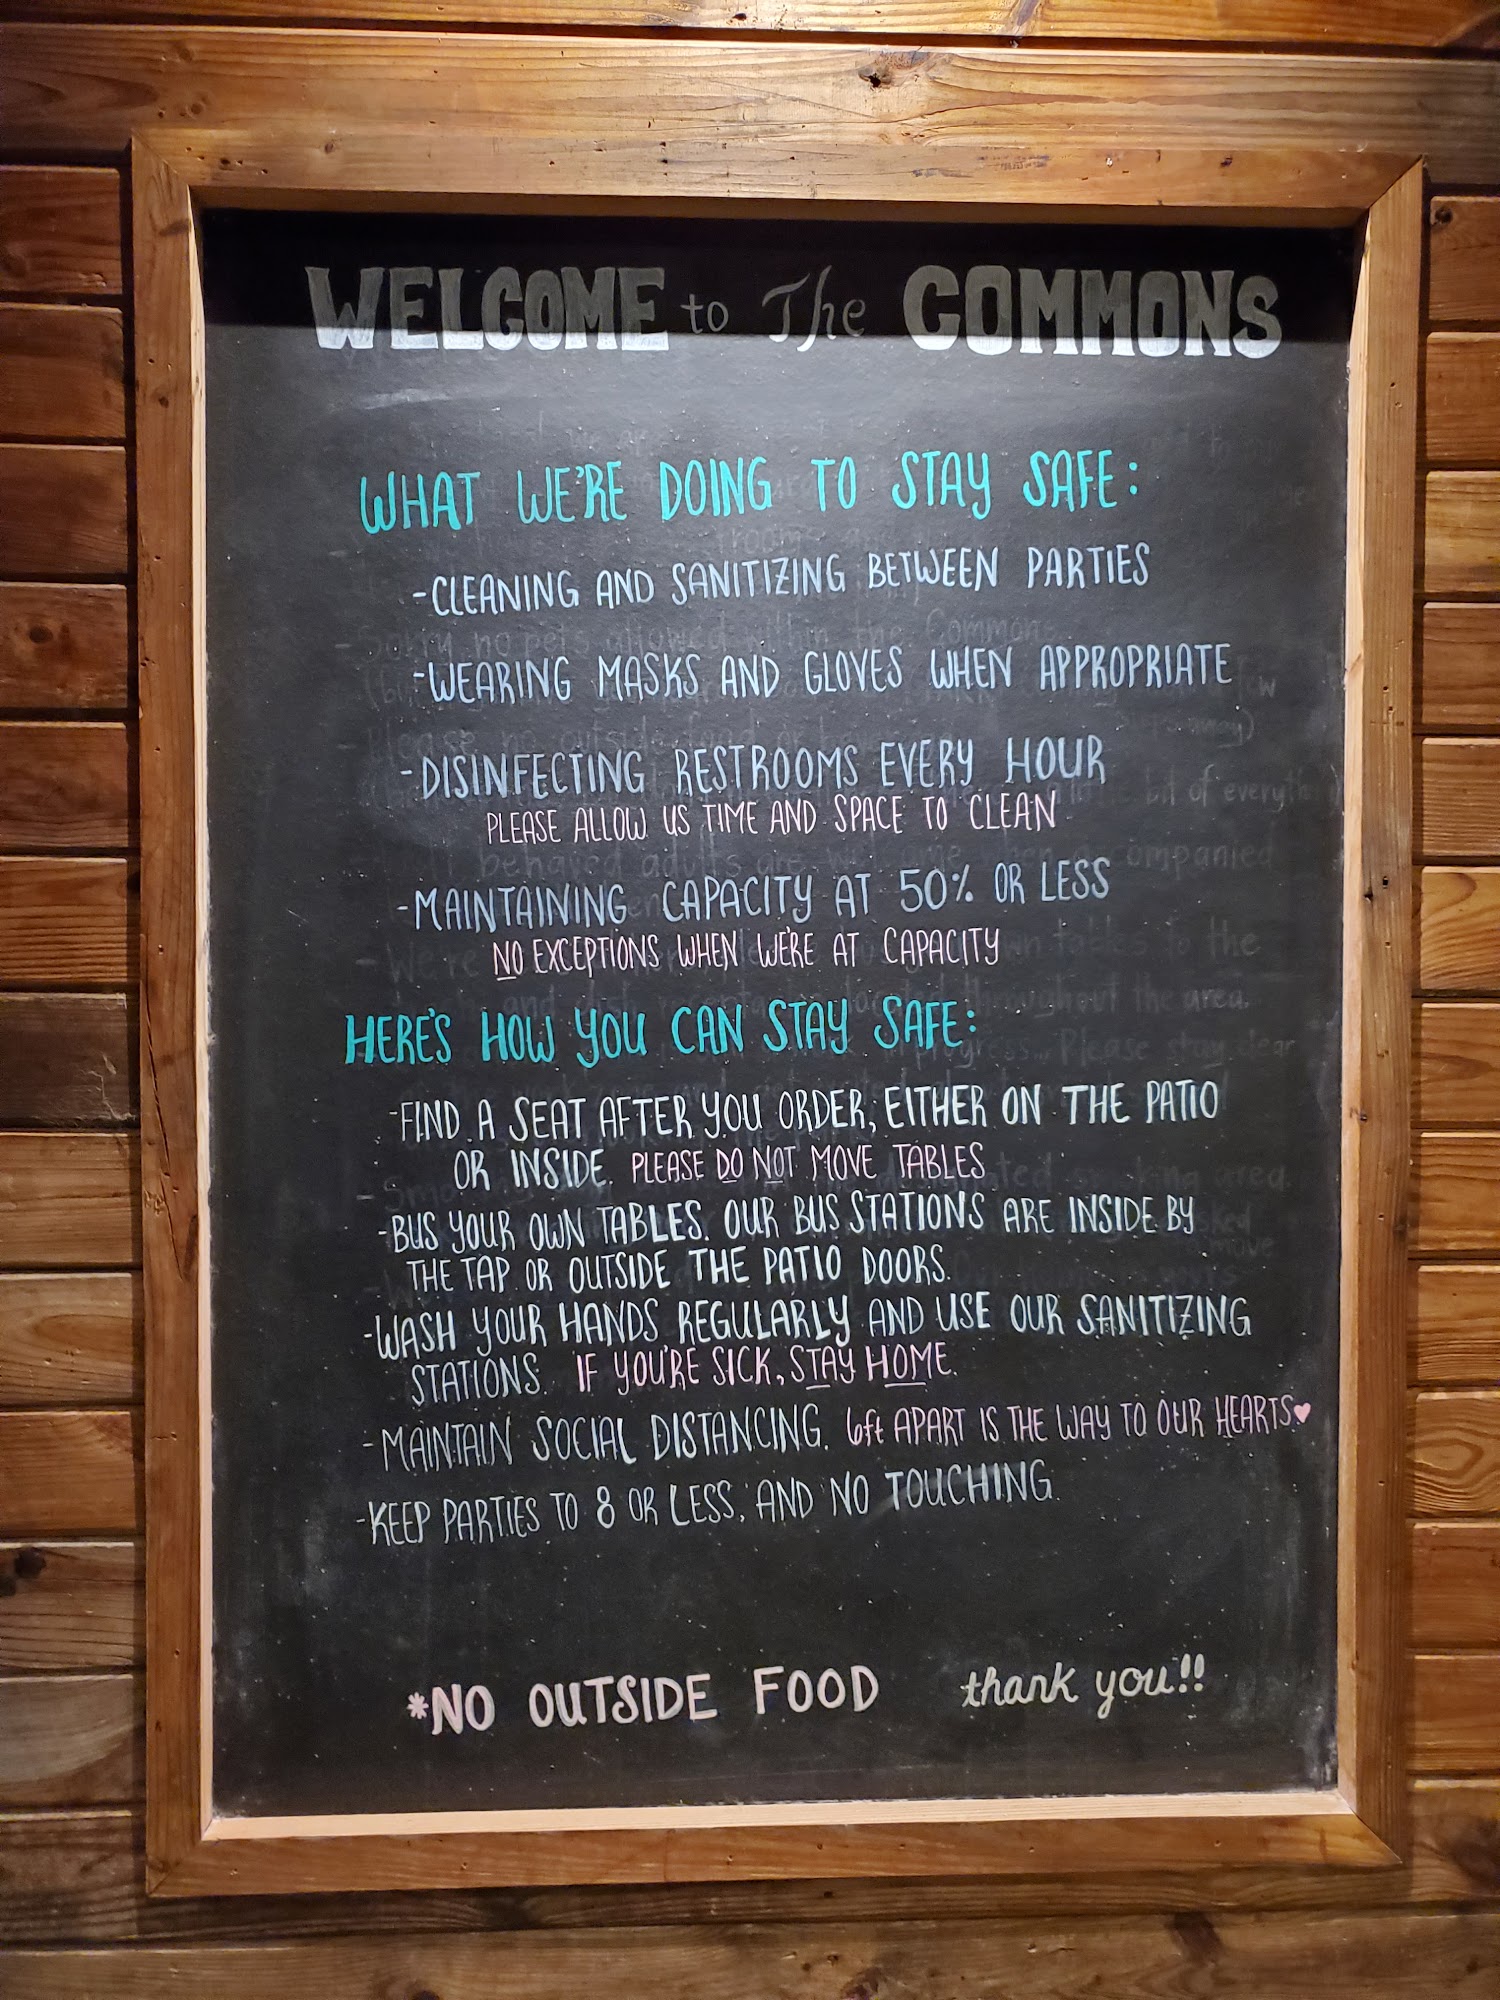 WELCOME to The COMMONS
WHAT WE'RE DOING TO STAY SAFE:
-CLEANING AND SANITIZING BETWEEN PARTIES
-WEARING MASKS AND GLOVES WHEN APPROPRIATE
-DISINFECTING RESTROOMS EVERY HOUR
PLEASE ALLOW US TIME AND SPACE TO CLEAN
-MAINTAINING CAPACITY AT 50% OR LESS
NO EXCEPTIONS WHEN WE'RE AT CAPACITY
HERE'S HOW YOU CAN STAY SAFE:
-FIND A SEAT AFTER YOU ORDER, EITHER ON THE PATIO
OR INSIDE. PLEASE DO NOT MOVE TABLES
-BUS YOUR OWN TABLES. OUR BUS STATIONS ARE INSIDE BY
THE TAP OR OUTSIDE THE PATIO DOORS.
-WASH YOUR HANDS REGULARLY AND USE OUR SANITIZING
STATIONS. IF YOU'RE SICK, STAY HOME.
-MAINTAIN SOCIAL DISTANCING. 6ft APART IS THE WAY TO OUR HEARTS♥
-KEEP PARTIES TO 8 OR LESS, AND NO TOUCHING.
*NO OUTSIDE FOOD thank you!!